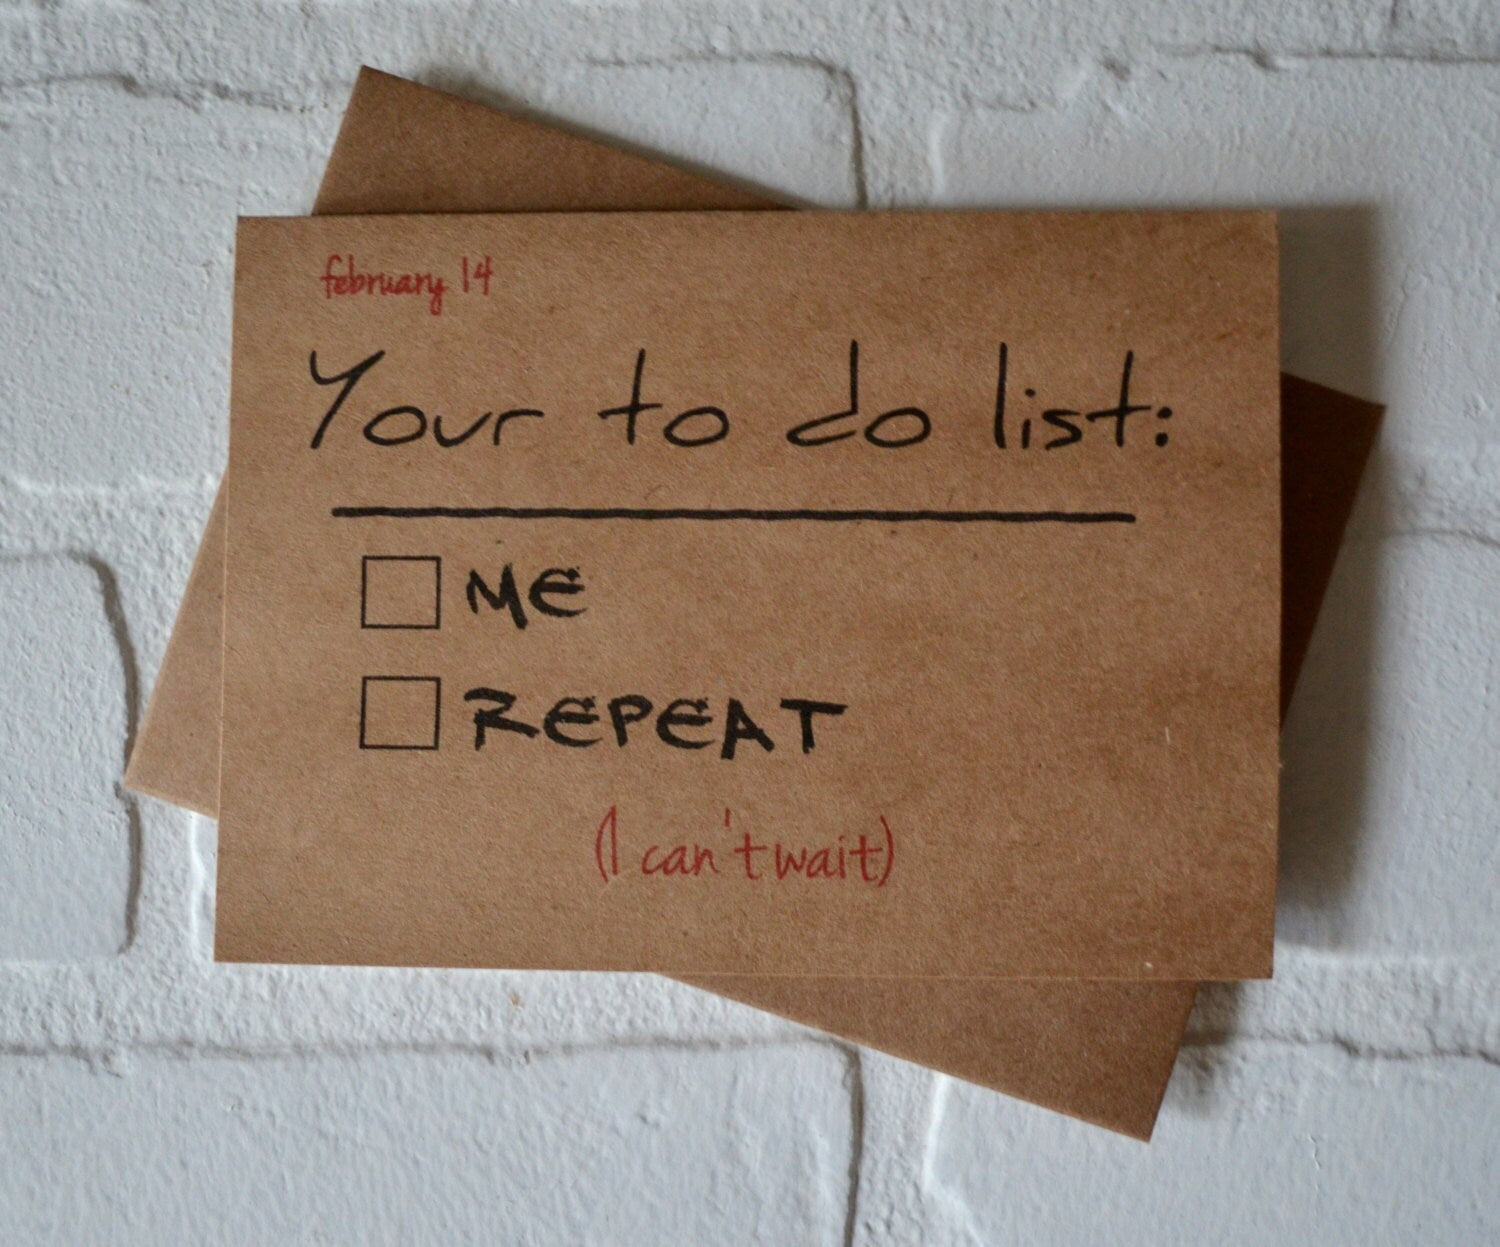 february 14
Your to do list:
ME
REPEAT
(I can't wait)